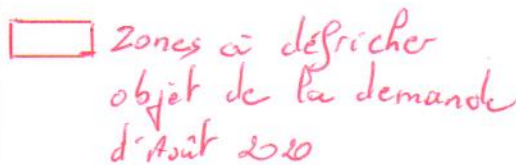 Zones à défricher
objet de la demande
d'Août 2020